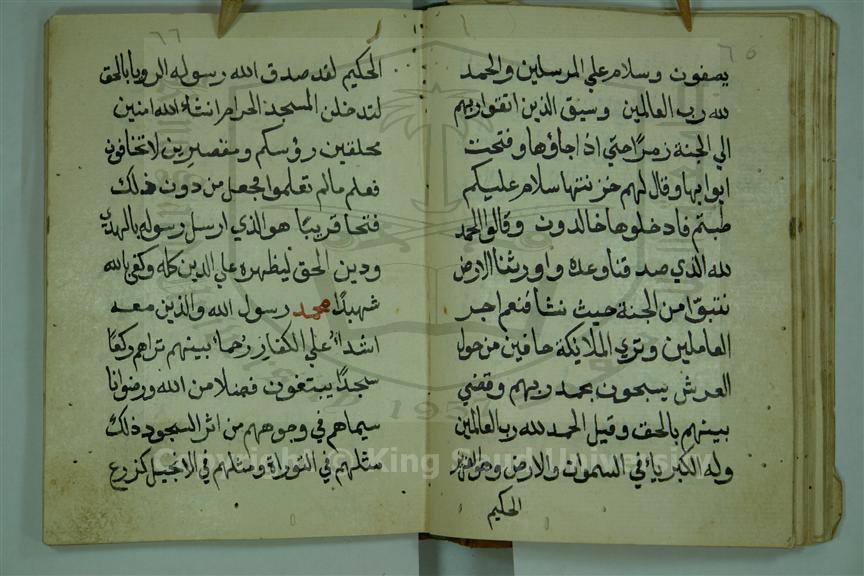 ٦٥
يصفون وسلام علي المرسلين والحمد
لله رب العالمين وسيق الذين اتقوا ربهم
الي الجنة زمرًا حتي اذا جاؤها وفتحت
ابوابها وقال لهم خزنتها سلام عليكم
طبتم فادخلوها خالدون وقالوا الحمد
لله الذي صدقنا وعده واورثنا الارض
نتبوّا من الجنة حيث نشا فنعم اجر
العاملين وتري الملايكة حافين من حول
العرش يسبحون بحمد ربهم وقضي
بينهم بالحق وقيل الحمد لله رب العالمين
وله الكبرياء في السموات والارض وهو العزيز
الحكيم
٦٦
الحكيم لقد صدق الله رسوله الرويا بالحق
لتدخلن المسجد الحرام انشاء الله امنين
محلقين رؤسكم ومقصرين لا تخافون
فعلم مالم تعلموا فجعل من دون ذلك
فتحا قريبًا هو الذي ارسل رسوله بالهدي
ودين الحق ليظهره علي الدين كله وكفي بالله
شهيدًا محمد رسول الله والذين معه
اشداء علي الكفار رحماء بينهم تراهم ركعًا
سجدًا يبتغون فضلا من الله ورضوانا
سيماهم في وجوههم من اثر السجود ذلك
مثلهم في التوراة ومثلهم في الانجيل كزرع
Copyright © King Saud University
195